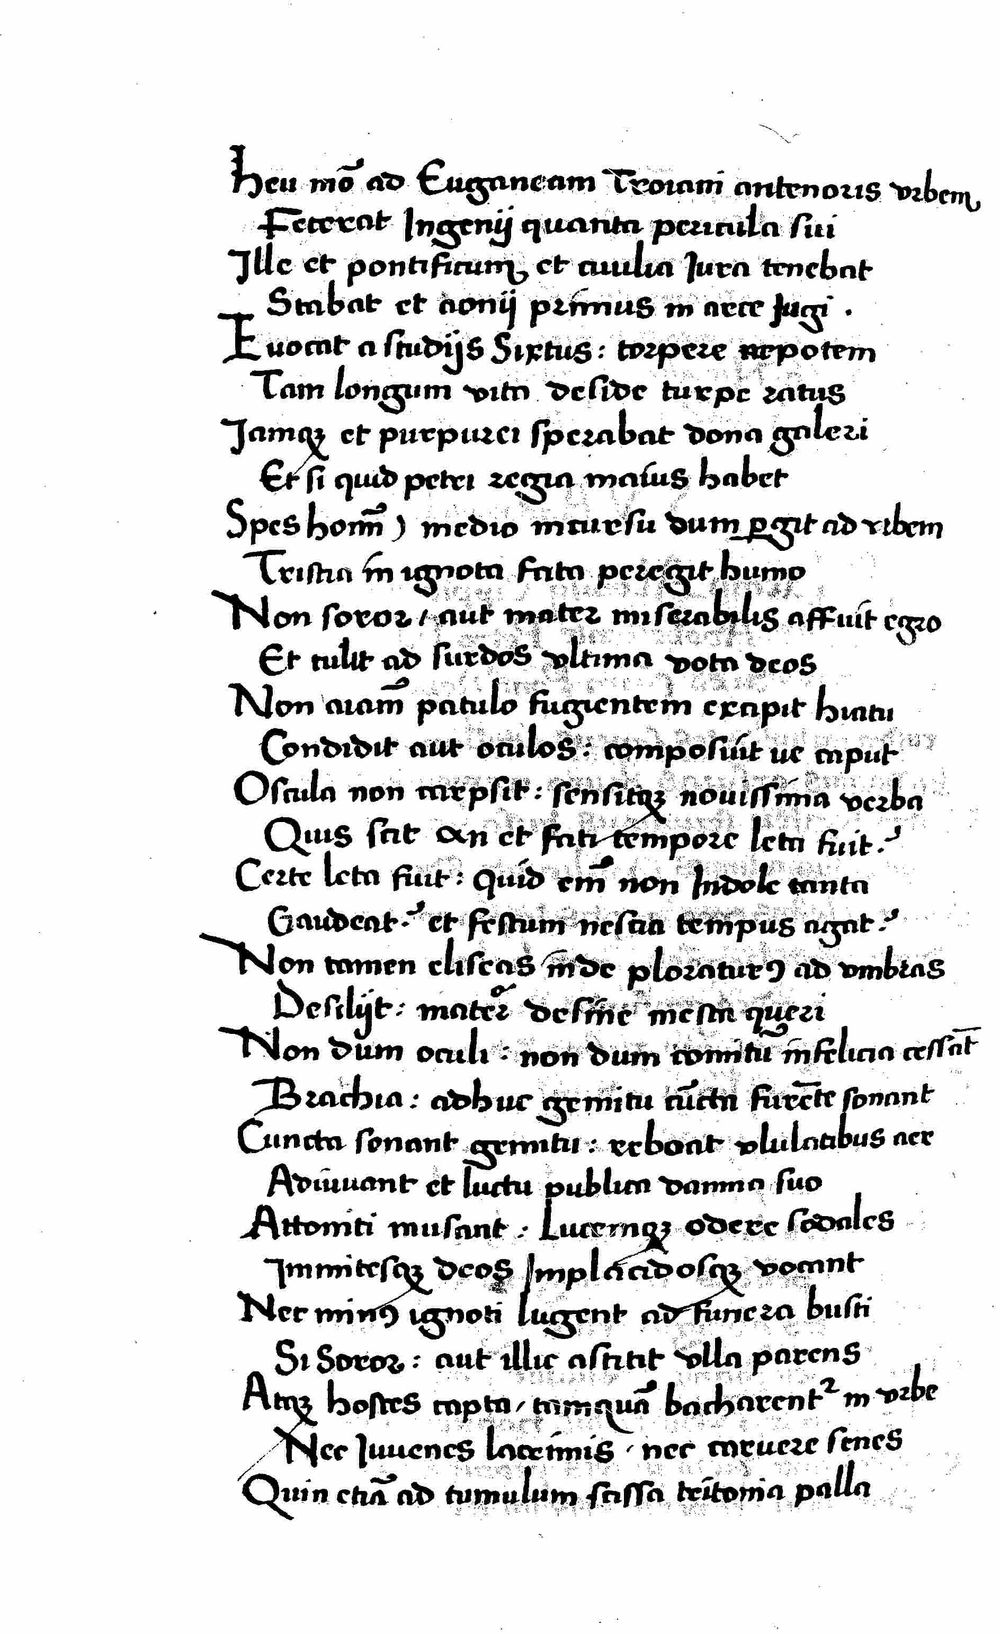 Heu mō ad Euganeam Troiani antenoris vrbem
Fecerat Ingenij quanta pericula sui
Ille et pontificum et ciuilia Iura tenebat
Stabat et aonij primus in arce Jugi .
Euocat a studijs Sixtus : torpere nepotem
Tam longum vita deside turpe ratus
Jamqꝫ et purpurei sperabat dona galeri
Et si quid petri regia maius habet
Spes homīn ) medio in cursu dum ꝑgit ad vrbem
Tristia in ignota fata peregit humo
Non soror / aut mater miserabilis affuit egro
Et tulit ad surdos vltima vota deos
Non aīam patulo fugientem excipit hiatu
Condidit aut oculos : composuit ue caput
Oscula non carpsit : sensitqꝫ nouissima verba
Quis scit an et fati tempore leta fuit ?
Certe leta fuit : quid em̄ non Indole tanta
Gaudeat ? et festum nescia tempus agat ?
Non tamen eliseas inde ploraturꝰ ad vmbras
Desilijt : mater desine mesta queri
Non dum oculi : non dum comitū infelicia cessāt
Brachia : adhuc gemitu cūcta furēte sonant
Cuncta sonant gemitu : reboat vlulatibus aer
Adiuuant et luctu publica damna suo
Attoniti musant : Lucemqꝫ odere sodales
Immitesqꝫ deos Implacidosqꝫ vocant
Nec minꝰ ignoti lugent ad funera busti
Si Soror : aut illic astitit vlla parens
Atqꝫ hostes capta / tamquā bacharent᷑ in vrbe
Nec Iuuenes lacrimis / nec caruere senes
Quin etiā ad tumulum scissa tritonia palla